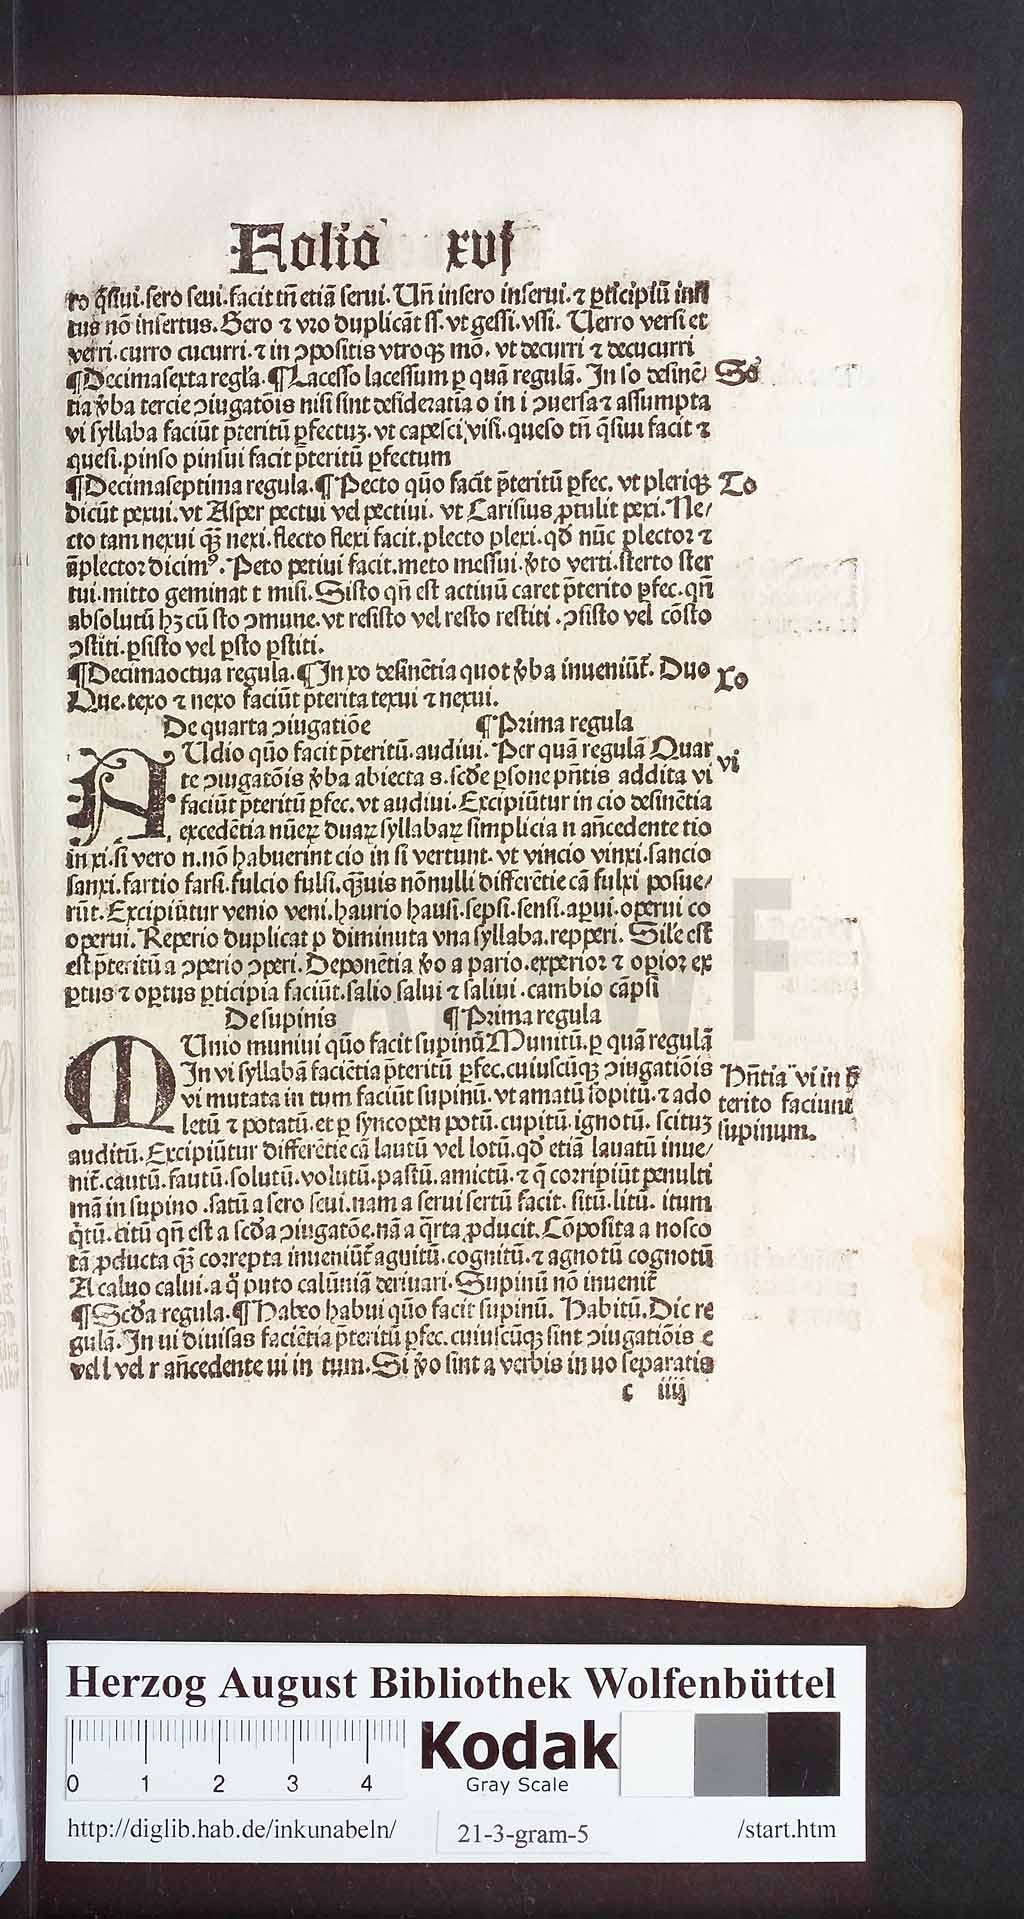 Folio xvj
ro q̃siui. sero seui. facit tñ etiã serui. Uñ insero inserui. ⁊ ꝑticipiũ insi
tus nõ insertus. Gero ⁊ vro duplicãt ss. vt gessi. vssi. Uerro versi et
verri. curro cucurri. ⁊ in ꝯpositis vtroqꝫ mõ. vt decurri ⁊ decucurri
¶Decimasexta regl̃a. ¶Lacesso lacessum ꝑ quã regulã. In so desinẽ/
So
tia v̾ba tercie ꝯiugatõis nisi sint desideratĩa o in i ꝯuersa ⁊ assumpta
vi syllaba faciũt p̃teritũ ꝑfectuꝫ. vt capesci visi. queso tñ q̃siui facit ⁊
quesi. pinso pinsui facit p̃teritũ ꝑfectum
¶Decimaseptima regula. ¶Pecto quõ facit̃ p̃teritũ ꝑfec. vt pleriqꝫ
To
dicũt pexui. vt Asper pectui vel pectiui. vt Carisius ꝓtulit pexi. Ne/
cto tam nexui qꝫ̃ nexi. flecto flexi facit. plecto plexi. qd̾ nũc plector ⁊
ãplector dicimꝰ. Peto petiui facit. meto messui. v̾to verti. sterto ster
tui. mitto geminat t misi. Sisto qñ est actiuũ caret p̃terito ꝑfec. qñ
absolutũ hꝫ cũ sto ꝯmune. vt resisto vel resto restiti. ꝯsisto vel cõsto
ꝯstiti. ꝑsisto vel ꝑsto ꝑstiti.
¶Decimaoctaua regula. ¶In xo desinẽtia quot v̾ba inueniũt̃. Duo
xo
Que. texo ⁊ nexo faciũt p̃terita texui ⁊ nexui.
De quarta ꝯiugatiõe ¶Prima regula
AUdio quõ facit p̃teritũ. audiui. Per quã regulã Quar
vi
te ꝯiugatõis v̾ba abiecta s. scd̾e ꝑsone pñtis addita vi
faciũt p̃teritũ ꝑfec. vt audiui. Excipiũtur in cio desinẽtia
excedẽtia nũeꝝ duaꝝ syllabaꝝ simplicia n añcedente tio
in xi. si vero n. nõ habuerint cio in si vertunt. vt vincio vinxi. sancio
sanxi. fartio farsi. fulcio fulsi. qꝫ̃uis nõnulli differẽtie cã fulxi posue/
rũt. Excipiũtur venio veni. haurio hausi. sepsi. sensi. aꝑui. operui co
operui. Reperio duplicat p diminuta vna syllaba. repperi. Sil̾e est
est p̃teritũ a ꝯperio ꝯperi. Deponẽtia v̾o a pario. experior ⁊ opior ex
ꝑtus ⁊ oꝑtus ꝑticipia faciũt. salio salui ⁊ saliui. cambio cãpsi
De supinis ¶Prima regula
MUnio muniui quõ facit supinũ Munitũ. ꝑ quã regulã
In vi syllabã faciẽtia p̃teritũ ꝑfec. cuiuscũqꝫ ꝯiugatiõis
Hñtia vi in p̃
terito faciunt
supinum.
vi mutata in tum faciũt supinũ. vt amatũ sopitũ. ⁊ ado
letũ ⁊ potatũ. et ꝑ syncopen potũ. cupitũ. ignotũ. scituꝫ
auditũ. Excipiũtur differẽtie cã lautũ vel lotũ. qd̾ etiã lauatũ inue/
nit̃. cautũ. fautũ. solutũ. volutũ. pastũ. amictũ. ⁊ q̃ corripiũt penulti
mã in supino. satũ a sero seui. nam a serui sertũ facit. situ̅. litũ. itum
q̃tũ. citũ qñ est a scd̾a ꝯiugatõe. nã a q̃rta ꝓducit. Cõposita a nosco
tã ꝓducta qꝫ̃ correpta inueniũt̃ agnitũ. cognitũ. ⁊ agnotũ cognotũ
A caluo calui. a quo puto calũniã deriuari. Supinũ nõ inuenit̃
¶Scd̾a regula. ¶Habeo habui quõ facit supinũ. Habitũ. Dic re
gulã. In ui diuisas faciẽtia p̃teritũ ꝑfec. cuiuscũqꝫ sint ꝯiugatiõis e
vel l vel r añcedente ui in tum. Si v̾o sint a verbis in uo separatis
c iiij
Herzog August Bibliothek Wolfenbüttel
0 1 2 3 4
Kodak
Gray Scale
http://diglib.hab.de/inkunabeln/
21-3-gram-5
/start.htm